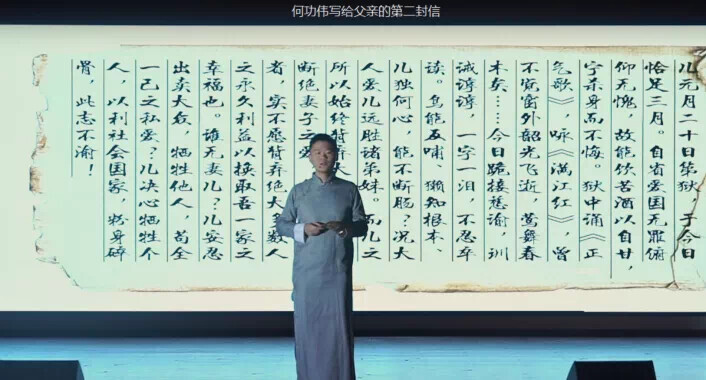 何功伟写给父亲的第二封信
儿元月二十日第狱 于今日
恰是三月。自省爱国无罪俯
仰无愧，故能饮苦酒以自甘，
宁杀身而不悔。狱中诵《正
气歌》，咏《满江红》，曾
不觉窗外韶光飞逝，莺舞春
木矣……今日跪接慈谕，训
诫谆谆，一字一泪，不忍卒
读。乌能反哺、獭知根本、
儿独何心，能不断肠？况大
人爱儿远胜诸弟妹。而儿之
所以始终背弃大
断绝妻子之爱
者，实不愿背弃绝大多数人
之永久利益以换取吾一家之
幸福也。谁无妻儿？儿安忍
出卖大众，牺牲他人，苟全
一己之私爱？儿决心牺牲个
人，以利社会国家，粉身碎
骨，此志不渝！